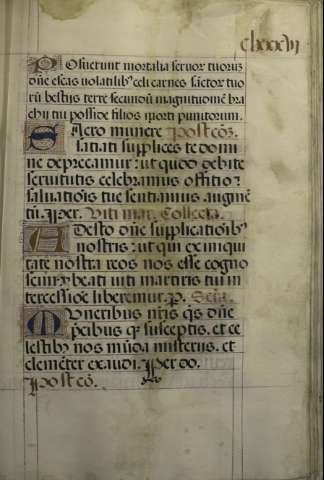 clxxxvi
Posuerunt mortalia seruor tuorum
dne escas uolatilib' celi carnes sanctor tuo
rū bestijs terre secundū magnitudinē bra
chij tui posside filios morti punitorum.
Sacro munere Postcō.
satiati supplices te domi
ne deprecamur: ut quod debite
seruitutis celebramus offitio:
saluatiōis tue sentiamus augmē
tū. Per. Viti mar. Collecta.
Adesto dne supplicatiōib'
nostris: ut qui ex iniqui
tate nostra reos nos esse cogno
scim': beati uiti martiris tui in
tercessiōe liberemur. P. Secrā.
Muneribus nris qs dne
precibus q' susceptis. et ce
lestib' nos mūda misterijs. et
clemēter exaudi. Per do.
Postcō.